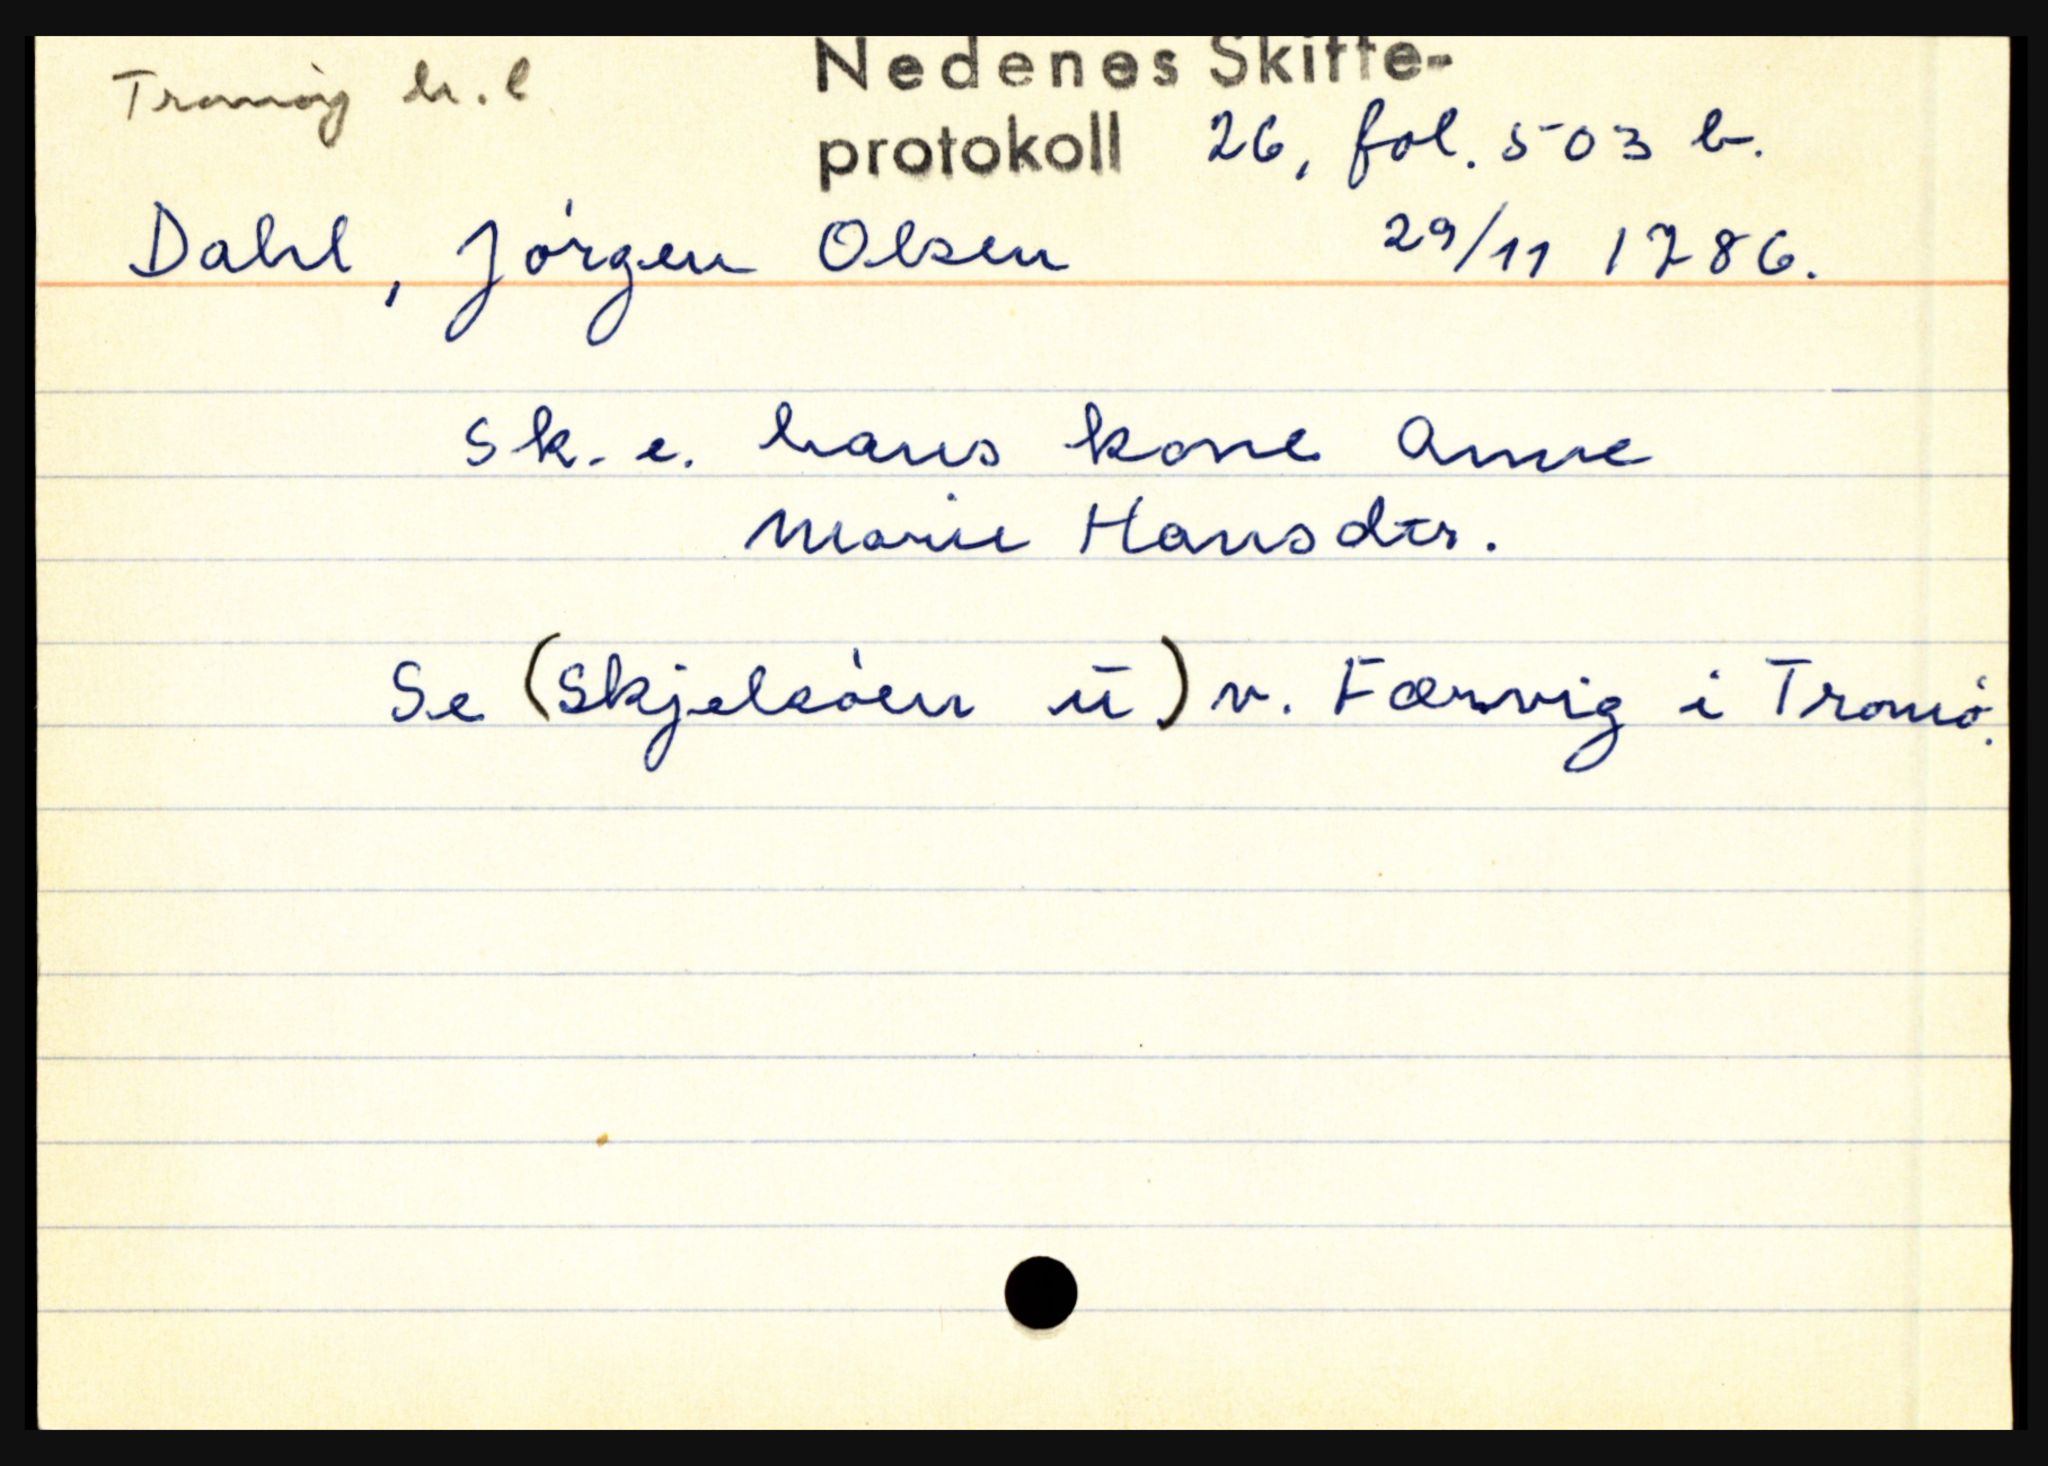 Tromöy h.l
Nedenes Skifte-
protokoll 26, fol. 503 b.
Dahl, Jörgen Olsen 29/11 1786.
Sk. e. hans kone Anne
Marie Hansdtr.
Se (Skjelsöen ū) v. Færvig i Tromö.